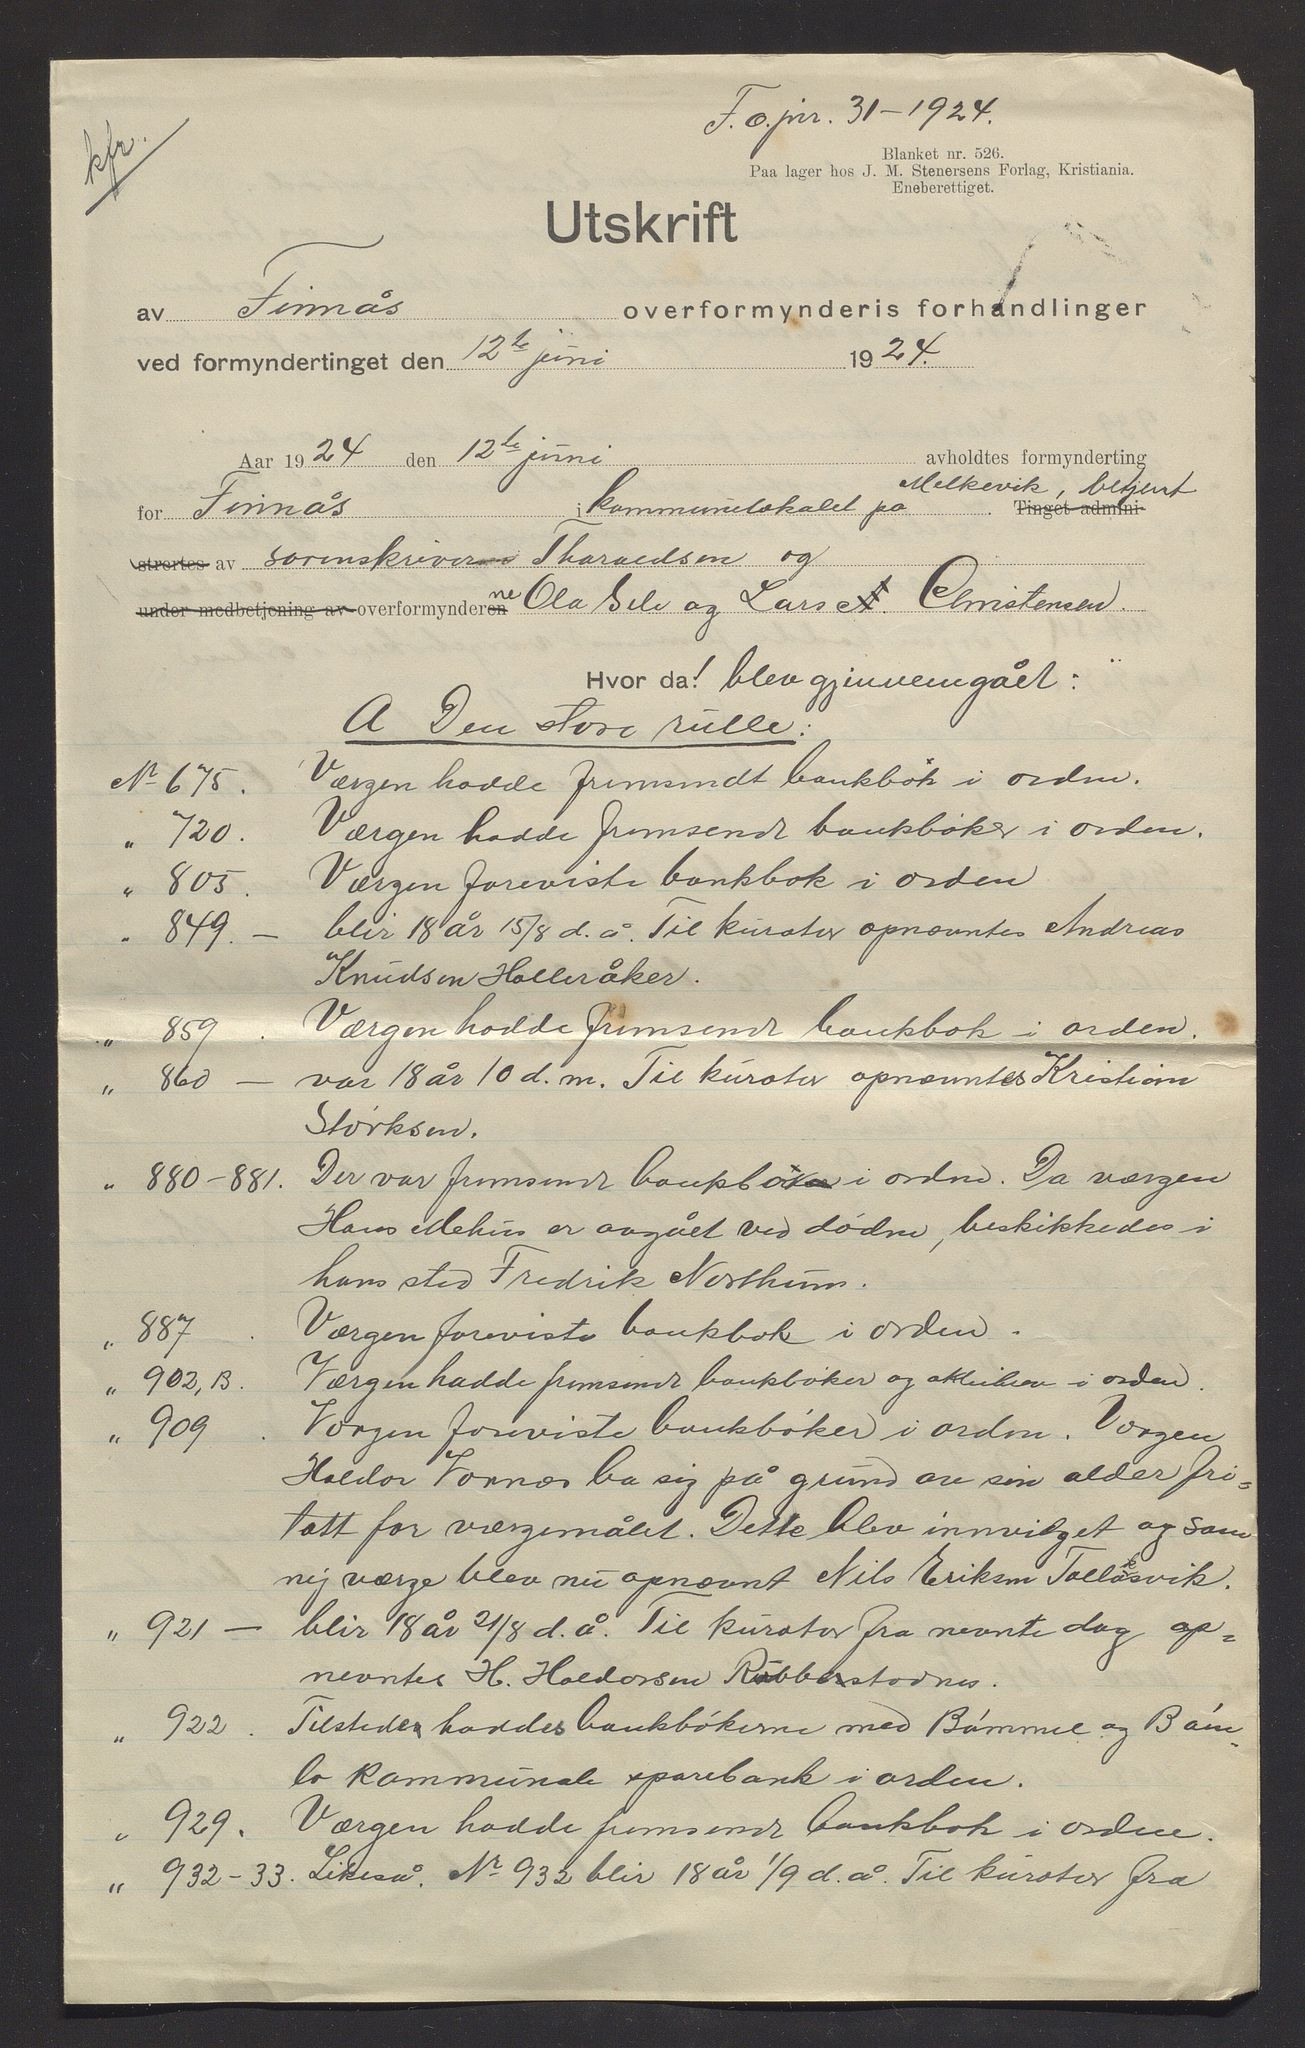 kfr.
F.o.jnr. 31-1924.
Blanket nr. 526.
Paa lager hos J. M. Stenersens Forlag, Kristiania.
Eneberettiget.
Utskrift
av Finnås overformynderis forhandlinger
ved formyndertinget den 12te juni 1924.
Aar 1924 den 12te juni avholdtes formynderting
for Finnås i kommunelokalet på Melkevik, betjent Tinget admini-
strertes av sorenskriver Tharaldsen og
under medbetjening av overformynderne Ola Sele og Lars Christensen.
Hvor da! blev gjennemgået:
A Den store rulle:
No 675. Værgen hadde fremsendt bankbok i orden.
" 720. Værgen hadde fremsendt bankbøker i orden.
" 805. Værgen foreviste bankbok i orden
" 849. — blir 18 år 15/8 d.å. Til kurator opnævntes Andreas
Knudsen Holleråker.
" 859. Værgen hadde fremsendt bankbok i orden.
" 860 — var 18 år 10 d.m. Til kurator opnævntes Kristian
Størksen.
" 880-881. Der var fremsendt bankbok i orden. Da værgen
Hans Mehus er avgået ved døden, beskikkedes i
hans sted Fredrik Northun.
" 887. Værgen foreviste bankbok i orden.
" 902, B. Værgen hadde fremsendt bankbøker og aktiebrev i orden.
" 909. Værgen foreviste bankbøker i orden. Værgen
Haldor Vornes ba sig på grund av sin alder fri-
tatt for værgemålet. Dette blev innvilget og som
nij værge blev nu opnævnt Nils Eriksen Tollaksvik.
" 921 — blir 18 år 21/8 d.å. Til kurator fra nevnte dag op-
nevntes H. Haldorsen Rubbestadnes.
" 922. Tilstede haddes bankbøkerne med Bømmel og Bøm-
lo kommunale sparebank i orden.
" 929. Værgen hadde fremsendt bankbok i orden.
" 932-33. Likeså. No 932 blir 18 år 1/9 d.å. Til kurator fra